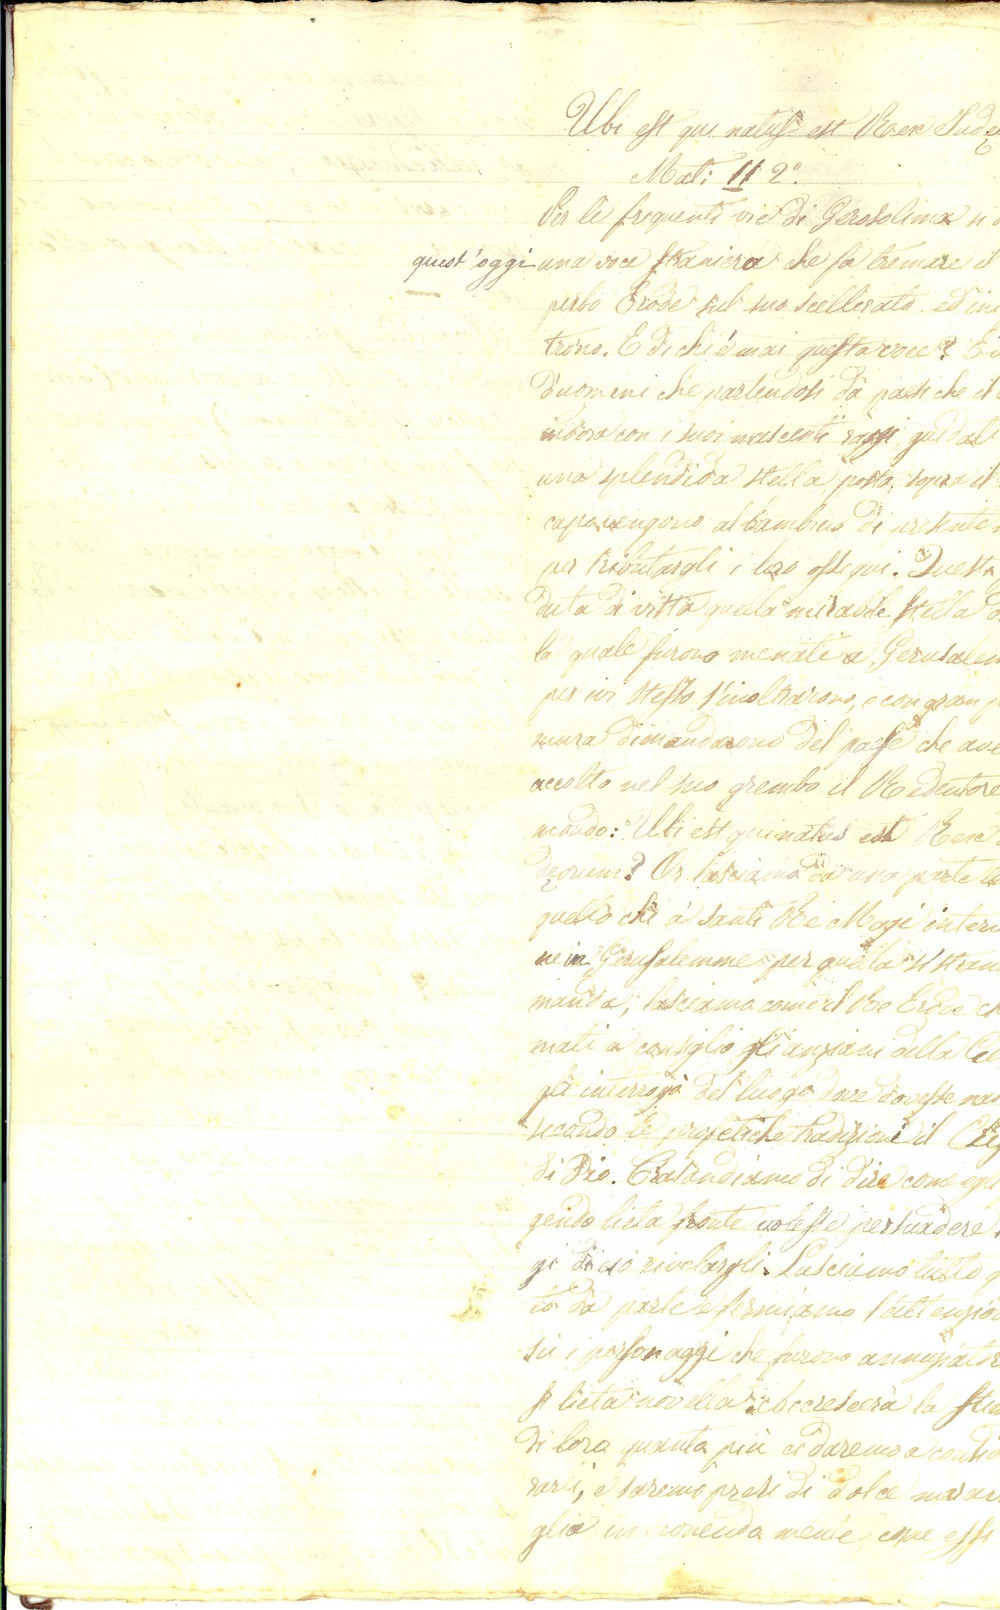 Ubi est qui natus est Rex Judę
Mat: II 2°.
Per le frequenti vie di Gerosolima si o
quest'oggi una voce straniera che fa tremare il
perbo Erode sul suo scellerato ed in
trono. E di chi è mai questa voce? È
d'uomini che partendosi da paesi che il
indora con i suoi nascenti raggi, guidat
una splendida stella posta sopra il
capo vengono al bambino di presente
per tributargli i loro ossequi. Questa
duta di vista quella mirabile stella d
la quale furono menati a Gerusalem
per ivi stesso s'inoltrarono, e con gran p
mura dimandarono del paese che ave
accolto nel suo grembo il Redentore
mondo: Ubi est qui natus est Rex
deorum? Or lasciamo da una parte
quello che a' santi Re Magi interv
ne in Gerusalemme per quella sì stran
manda, lasciamo come il Re Erode ch
mati a consiglio gli anziani della
gli interrogò del luogo dove dovesse nas
secondo le profetiche tradizioni il
di Dio. Tralandiamo di dire come egli
gendo lieta fronte volesse persuadere
gi di ciò rivelargli. Lasciamo tutto q
to da parte e fermiamo l'attenzion
su i personaggi che furono annunziator
sì lieta novella. Accrescerà la stim
di loro quanto più ci daremo a consid
rarli, e saremo presi di dolce marav
glia in ponendo mente, come essi